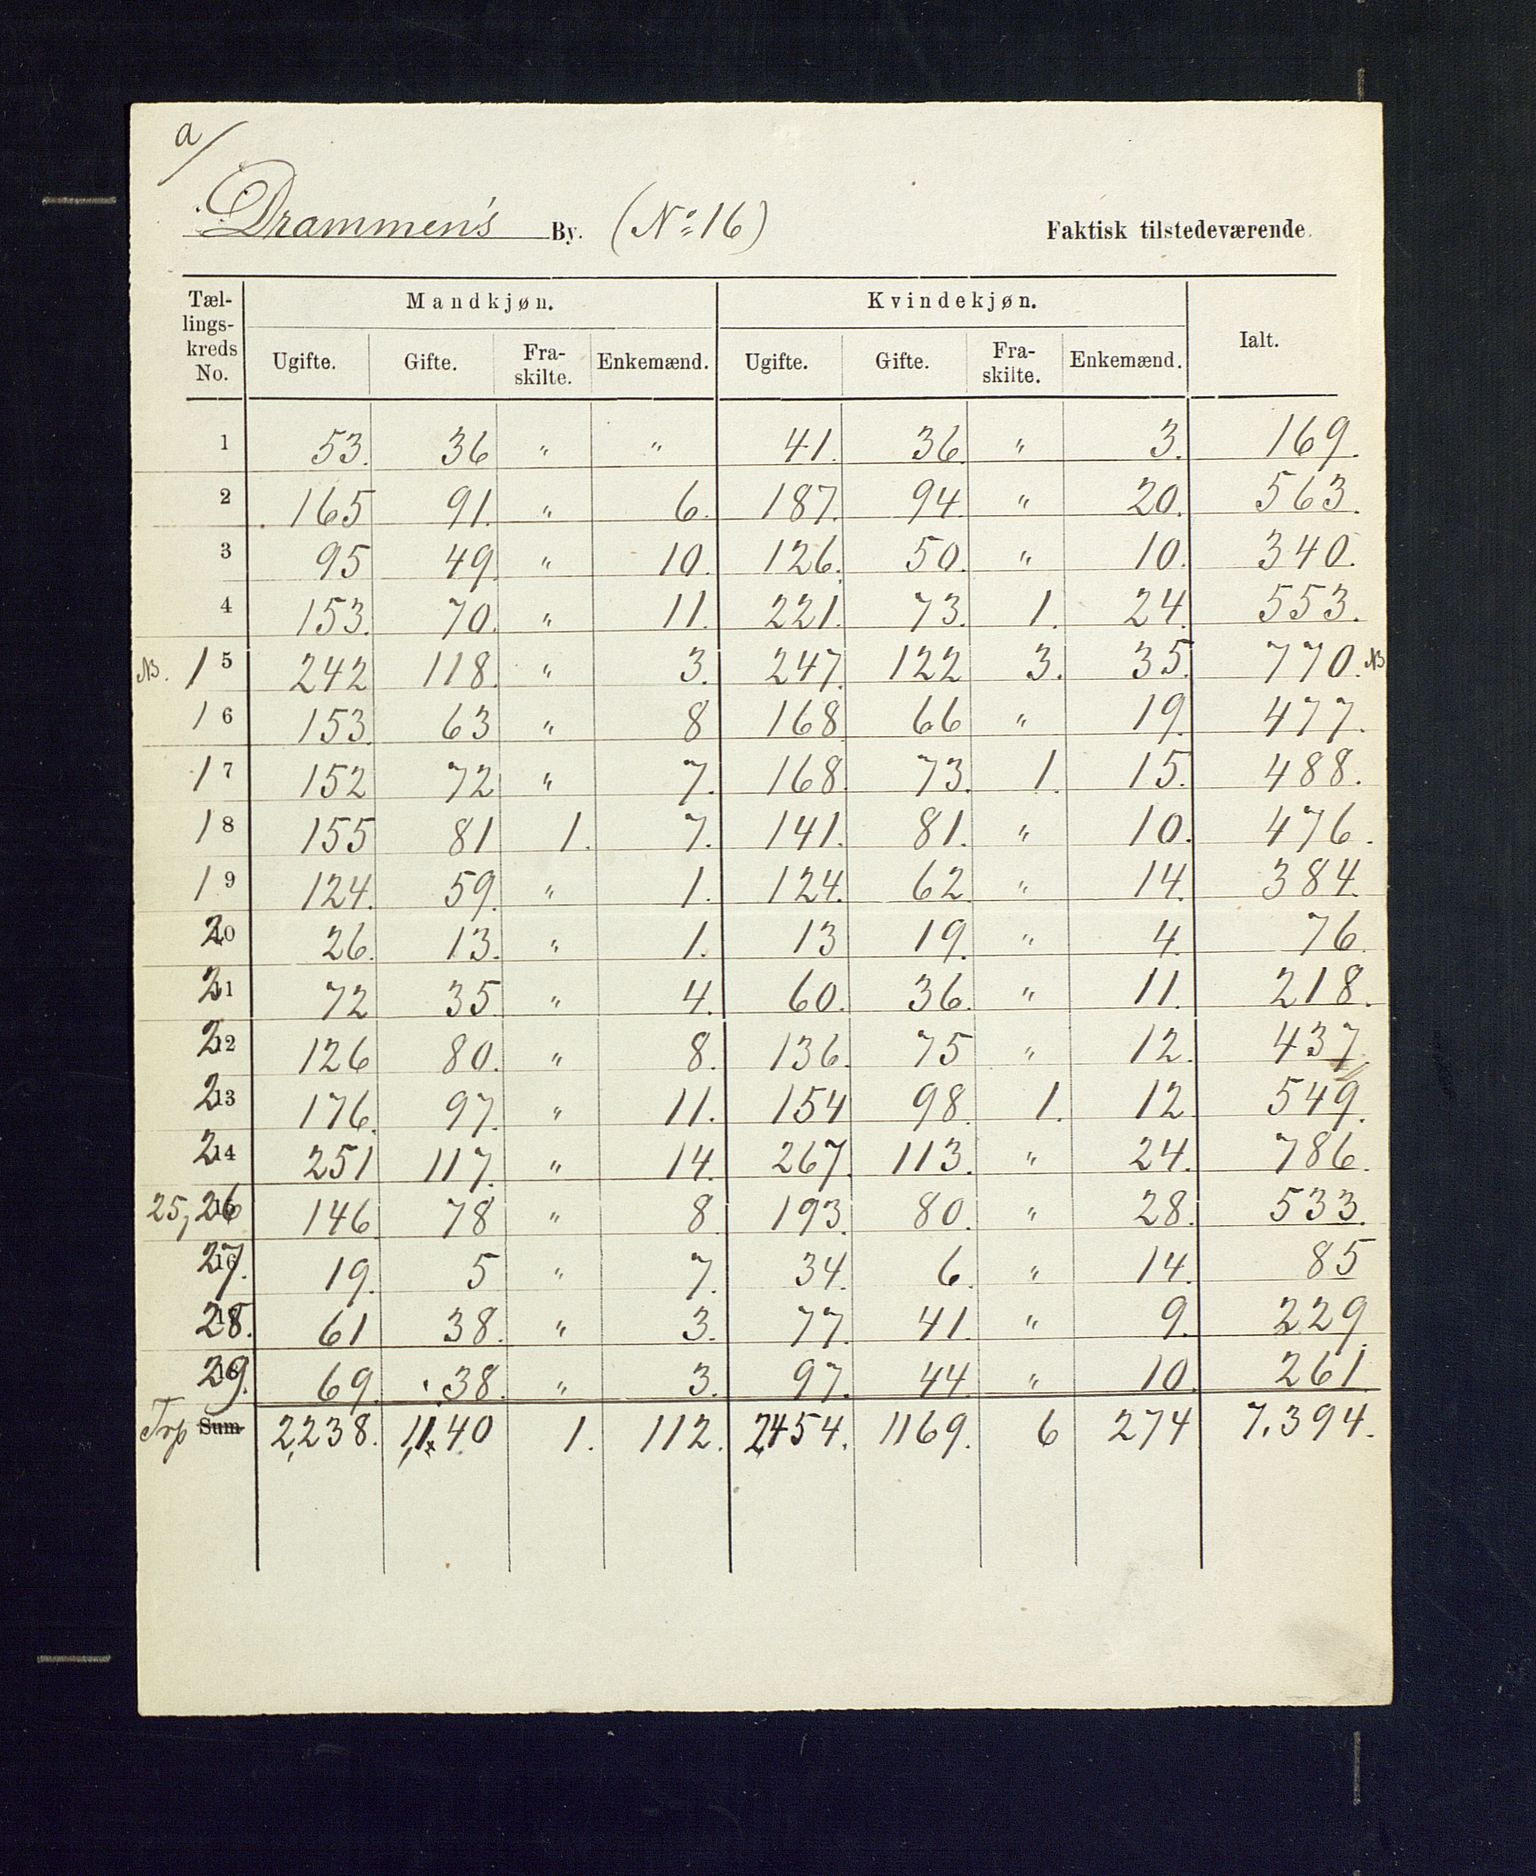 a/
Drammen's By. (No 16) Faktisk tilstedeværende.
Tæl-lings-kreds No. Mandkjøn. Kvindekjøn. Ialt.
Ugifte. Gifte. Fra-skilte. Enkemænd. Ugifte. Gifte. Fra-skilte. Enkemænd.
1 53. 36 " " 41. 36. " 3. 169.
2 165 91. " 6. 187. 94. " 20. 563.
3 95 49. " 10. 126. 50. " 10. 340.
4 153. 70. " 11. 221. 73. 1. 24. 553.
NB. 15 242 118. " 3. 247. 122 3. 35. 770. NB
16 153. 63 " 8 168 66 " 19. 477.
17 152 72 " 7. 168. 73. 1. 15. 488.
18 155 81 1. 7. 141. 81. " 10. 476.
19 124. 59. " 1. 124. 62 " 14. 384.
20 26. 13. " 1. 13 19. " 4. 76.
21 72 35 " 4. 60. 36. " 11. 218.
22 126 80. " 8. 136. 75 " 12. 437.
23 176. 97. " 11. 154 98. 1. 12. 549.
24 251 117. " 14. 267. 113. " 24. 786.
25, 26 146. 78 " 8. 193. 80. " 28. 533.
27. 19. 5 " 7. 34. 6. " 14. 85
28. 61 38. " 3. 77. 41. " 9. 229.
29. 69. 38. " 3. 97. 44. " 10. 261.
Trp Sum 2,238. 1,140. 1. 112. 2,454. 1169. 6 274 7,394.